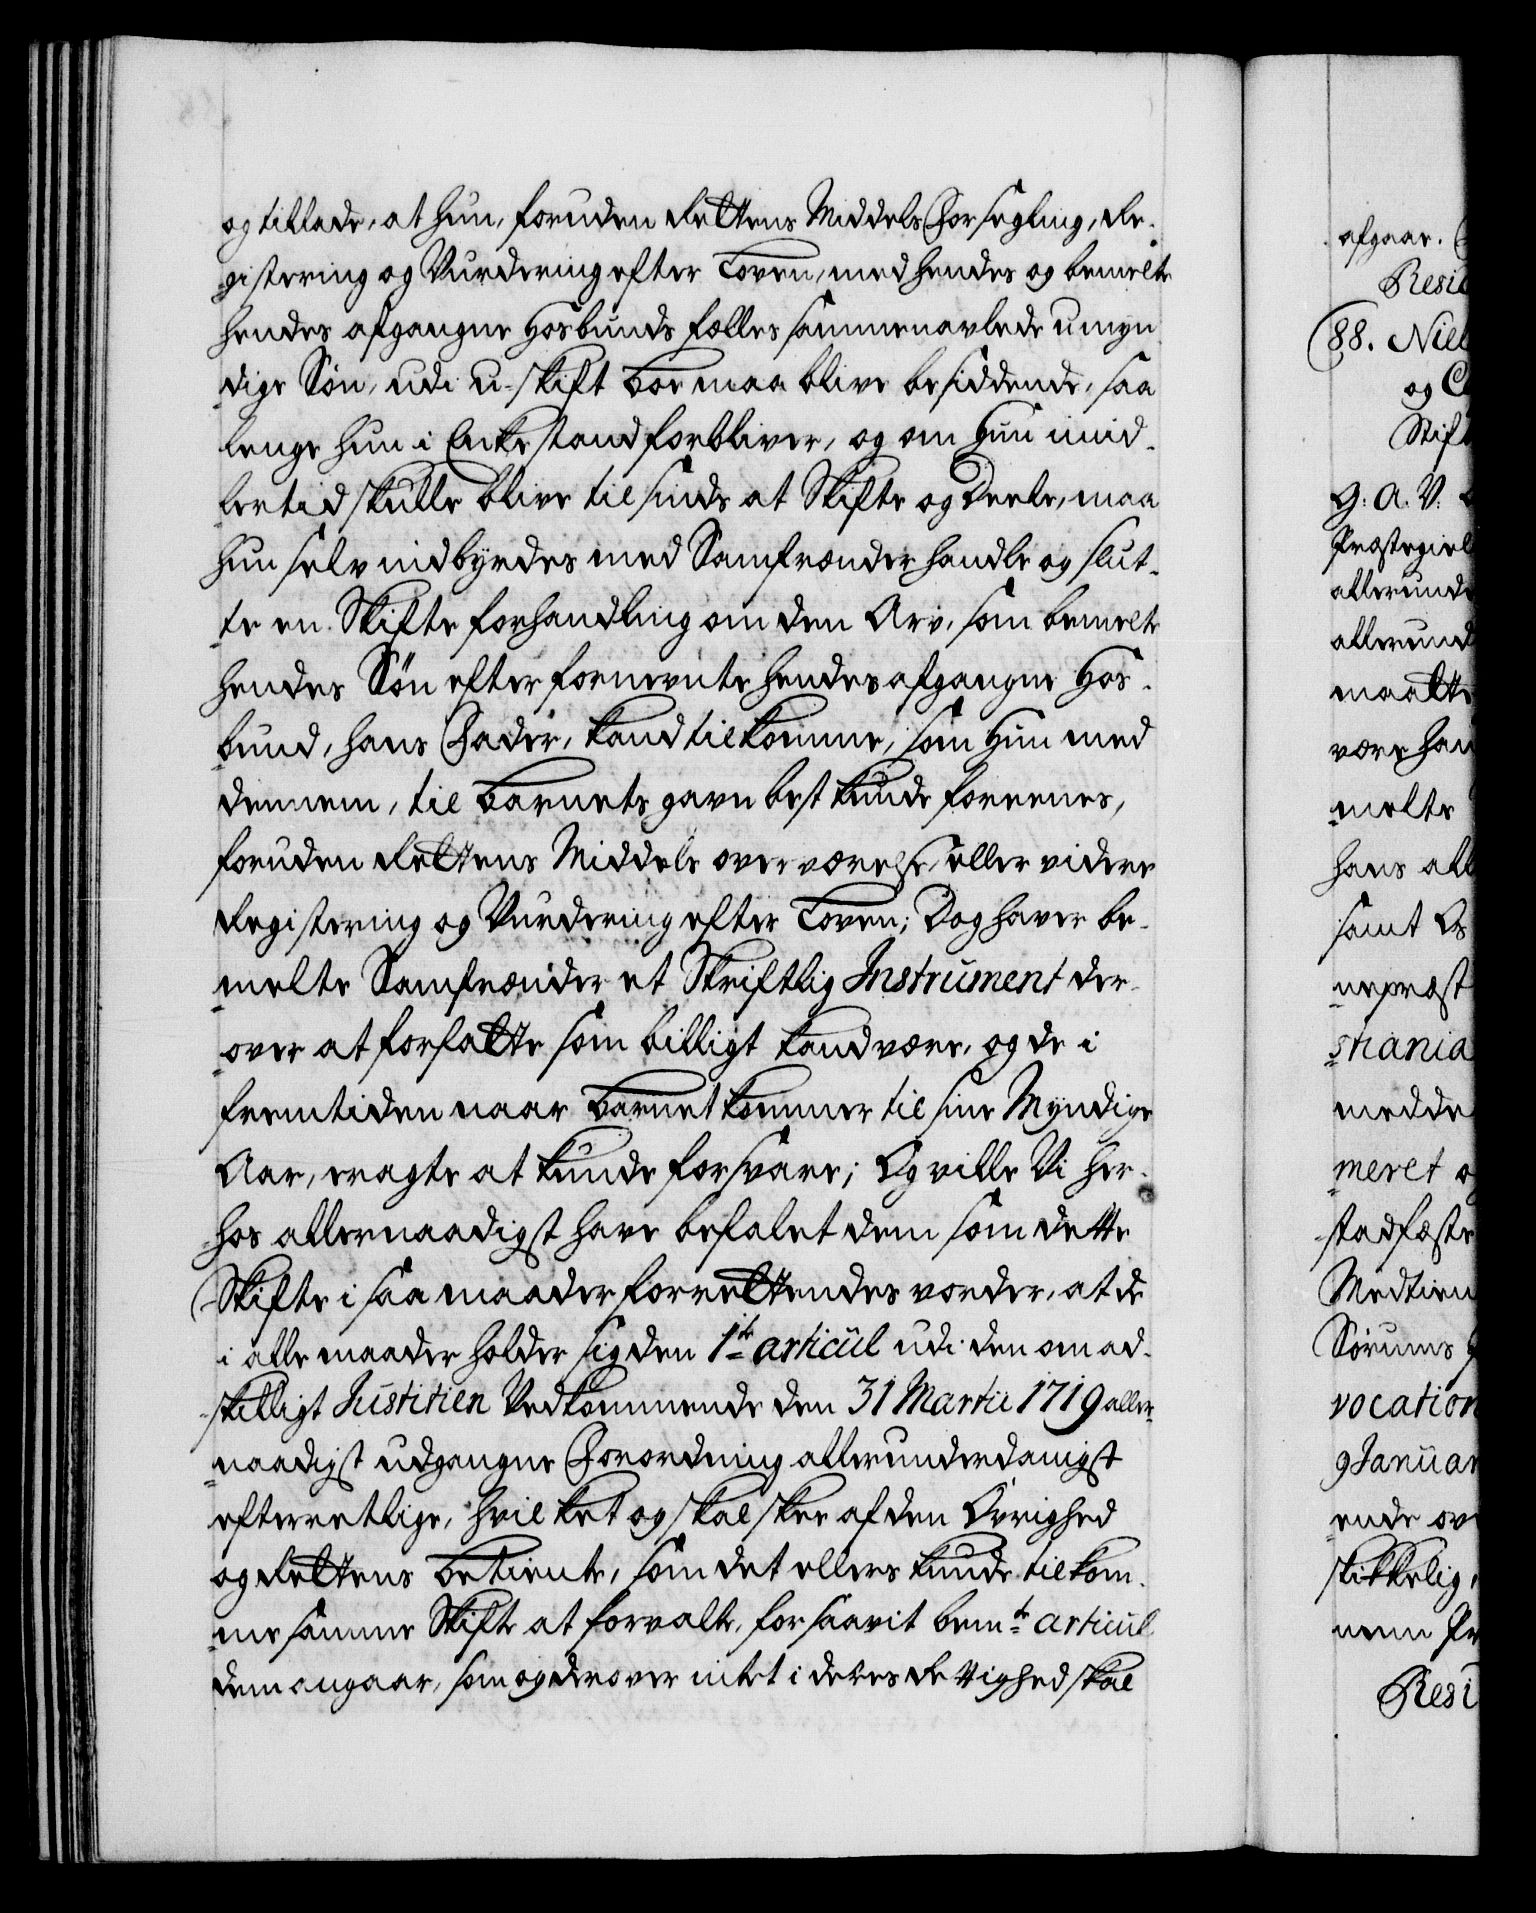 og tillade, at hun, foruden Rettens Middels Forsegling, Re-
gistering og Vurdering efter Loven, med hendes og bemelte
hendes afgangne Hosbunds fælles sammenavlede umyn-
dige Søn, udi u-skift Boe maa blive besiddende, saa
lenge hun i Enkestand forbliver, og om Hun imid-
lertid skulle blive til sinds at Skifte og Deele, maa
hun selv mindbyrdes med Samfrænder handle og slut-
te en Skifte forhandling om den Arv, som bemelte
hendes Søn efter fornevnte hendes afgangne Hos-
bund, hans Fader, kand tilkomme, som Hun med
dennem, til Barnets gavn best kunde foreenes,
foruden Rettens Middels overværelse, eller videre
Registering og Vurdering efter Loven; Dog haver be-
melte Samfrænder et Skriftlig Instrument der-
over at forfatte som billigt kand være, og de i
fremtiden naar Barnet kommer til sine Myndige
Aar, eragte at kunde forsvare; Og ville Vi her-
hos allernaadigst have befalet dem som dette
Skifte i saa maader forrettendes vorder, at de
i alle maader holder sig den 1te articul udi den om ad-
skilligt Justitien Vedkommende den 31 Martii 1719 aller-
naadigst udgangne Forordning allerunderdanigst
efterretlige, hvilket og skal skee af den Øvrighed
og Rettens Betiente, som det ellers kunde tilkom-
me samme Skifte at forvalte, forsaavit bemte articul
dem angaar, som og derover intet i deres Rettighed skal
afgaar.
Resi
88. Niel
og C
Stift
G: A. V:
Præstegiel
allerunde
allerund
maatte
være han
melte
hans all
samt Os
nepræst
stiania
medde
meret o
stadfæste
Medtien
Sørums
vocation
9 Januar
ende ov
skikkelig,
nem Pr
Resi